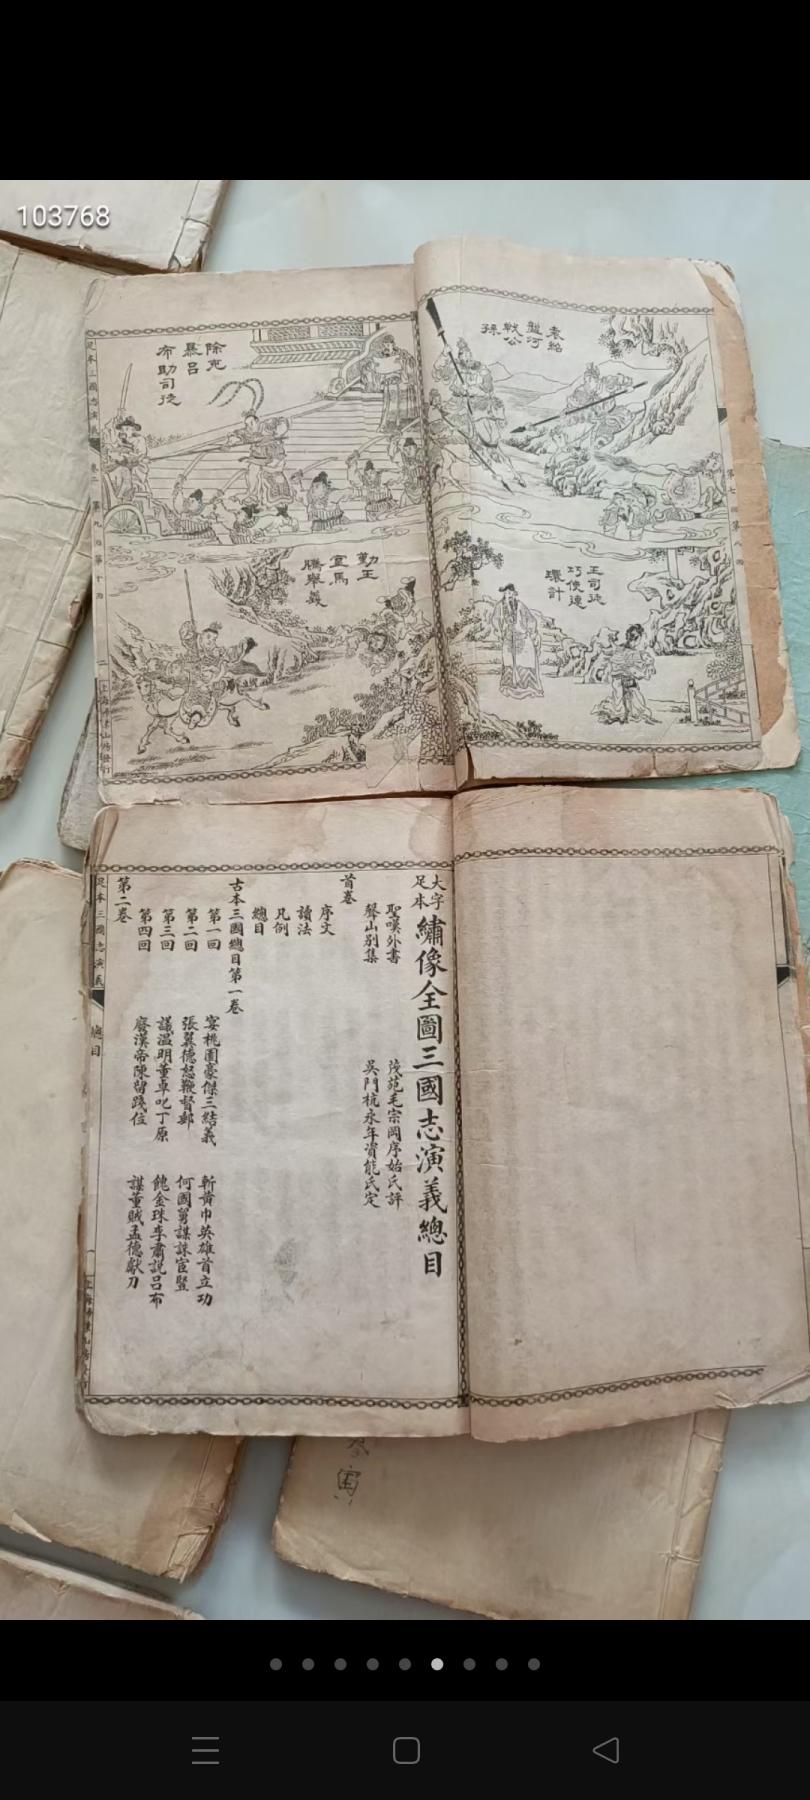 103768
袁紹
盤河
戰公
孫
王司徒
巧使連
環計
除兇
暴呂
布助司徒
勤王
宜馬
騰舉義
足本三國志演義
卷二
第九回第十回
二
第七回第八回
大字
足本
繡像全圖三國志演義總目
聖嘆外書
茂苑毛宗岡序始氏評
聲山別集
吳門杭永年資能氏定
首卷
序文
讀法
凡例
總目
古本三國總目第一卷
第一回
宴桃園豪傑三結義
斬黃巾英雄首立功
第二回
張翼德怒鞭督郵
何國舅謀誅宦豎
第三回
議溫明董卓叱丁原
餽金珠李肅說呂布
第四回
廢漢帝陳留踐位
謀董賊孟德獻刀
第二卷
足本三國志演義
總目
一